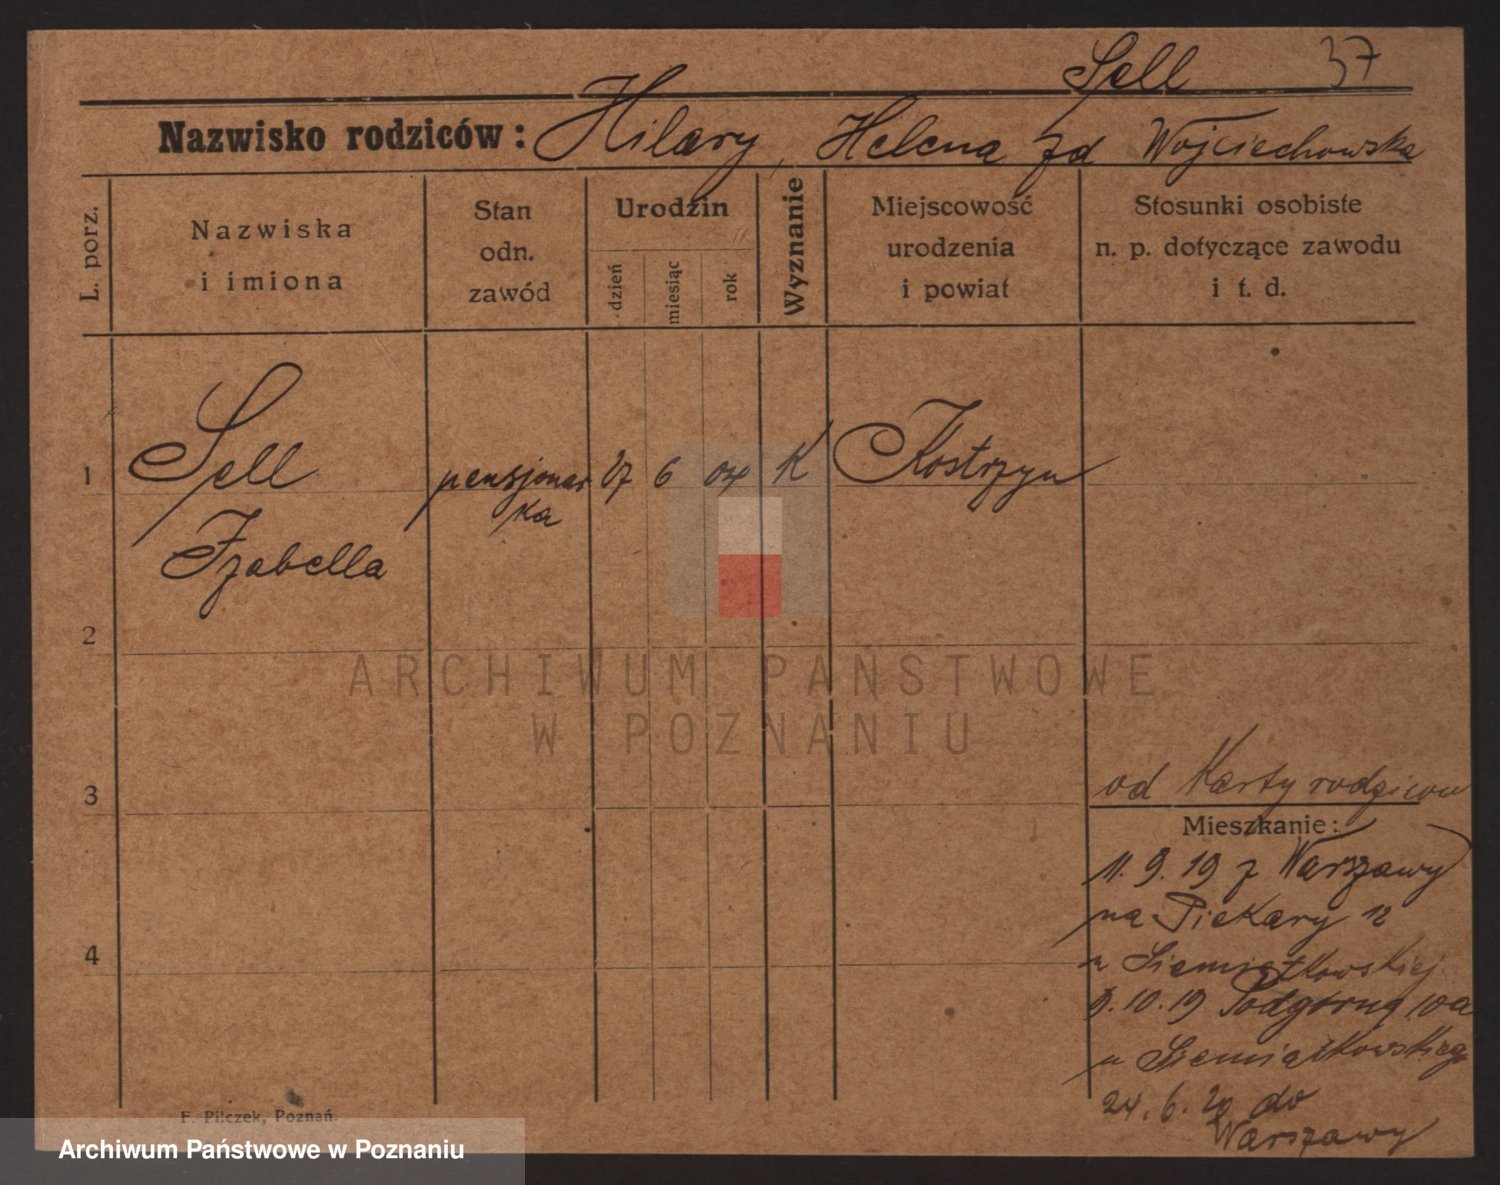 Sell 37
Nazwisko rodziców: Hilary, Helena zd Wojciechowska
L. porz.
Nazwiska
i imiona
Stan
odn.
zawód
Urodzin
dzień
miesiąc
rok
Wyznanie
Miejscowość
urodzenia
i powiat
Stosunki osobiste
n. p. dotyczące zawodu
i t. d.
1 Sell pensjonar 27 6 04 K Kostrzyn
ka
Izabella
2
3
4
od Karty rodziców
Mieszkanie:
11. 9. 19 z Warszawy
na Piekary 12
u Siemiątkowskiej
9. 10. 19 Podgórną 10a
u Siemiątkowskiego
24. 6. 20 do
Warszawy
F. Pilczek, Poznań.
ARCHIWUM PAŃSTWOWE
W POZNANIU
Archiwum Państwowe w Poznaniu